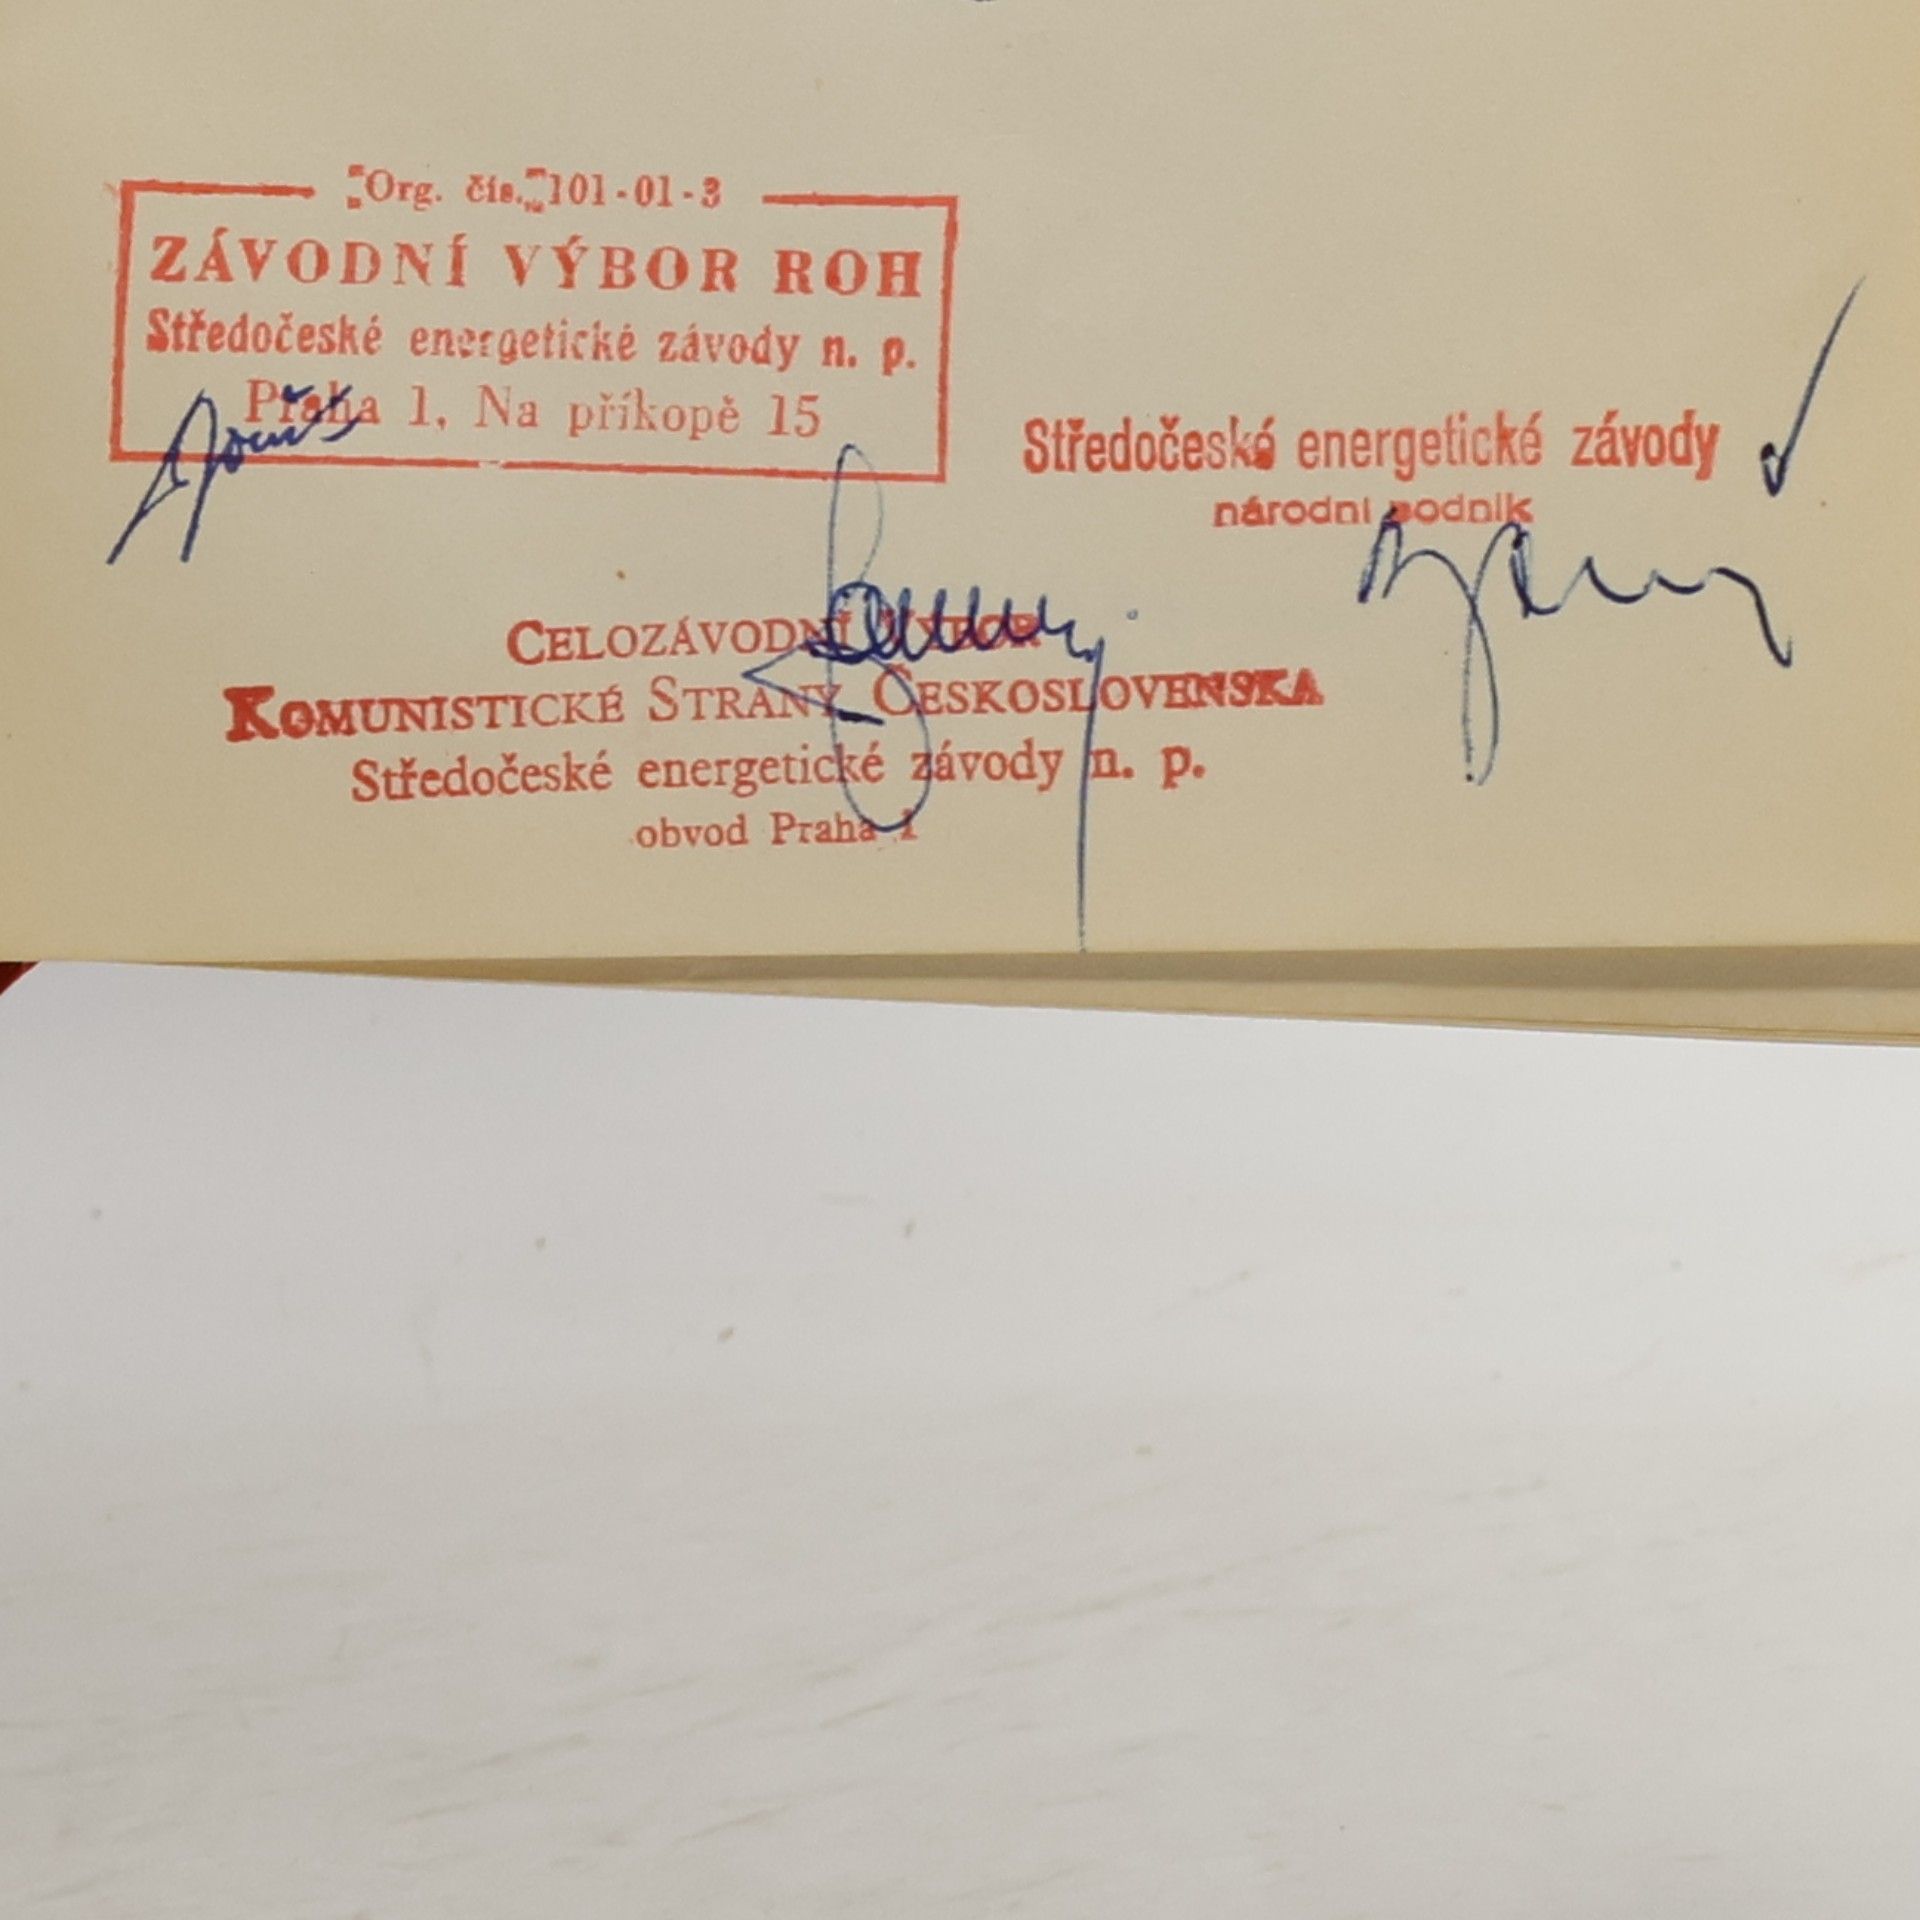 Org. čís. 101-01-3
ZÁVODNÍ VÝBOR ROH
Středočeské energetické závody n. p.
Praha 1, Na příkopě 15
Středočeské energetické závody
národní podnik
CELOZÁVODNÍ VÝBOR
KOMUNISTICKÉ STRANY ČESKOSLOVENSKA
Středočeské energetické závody n. p.
obvod Praha 1